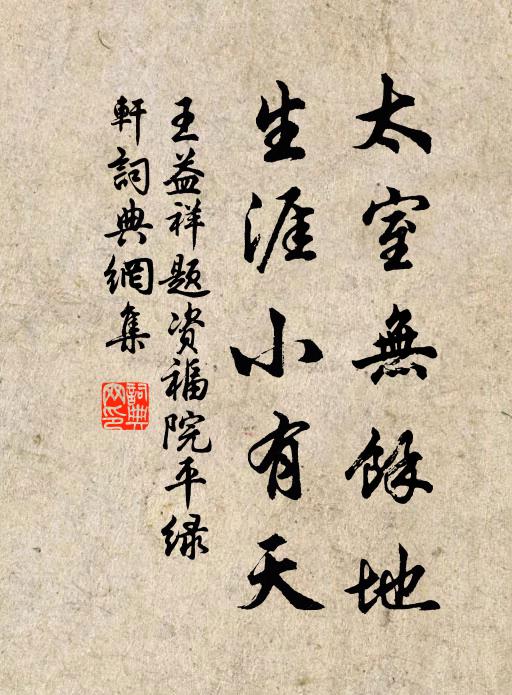 太室無餘地
生涯小有天
王益祥題资福院平绿
軒詞典網集
詞典
网印